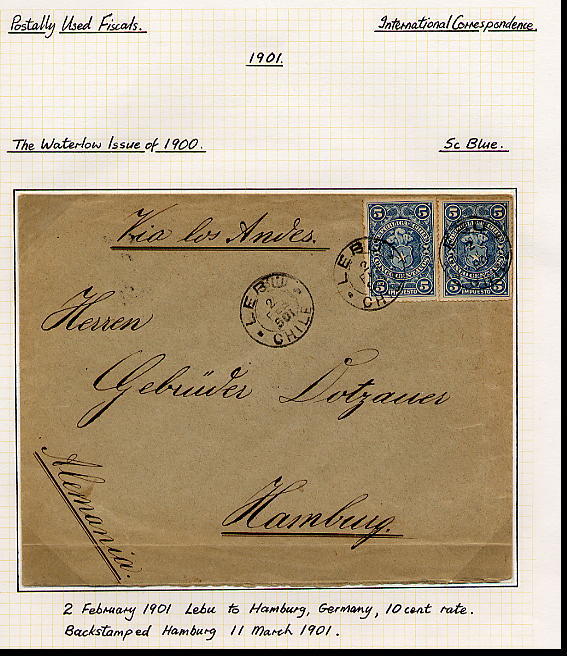 Postally Used Fiscals.
International Correspondence.
1901.
The Waterlow Issue of 1900.
5c Blue.
Via los Andes.
5 5 5 5
IMPUESTO
5 5 5 5
IMPUESTO
LEBU
CHILE
LEBU
2
FEB
901
CHILE
Herren
Gebrüder Dotzauer
Hamburg.
Alemania.
2 February 1901 Lebu to Hamburg, Germany, 10 cent rate.
Backstamped Hamburg 11 March 1901.